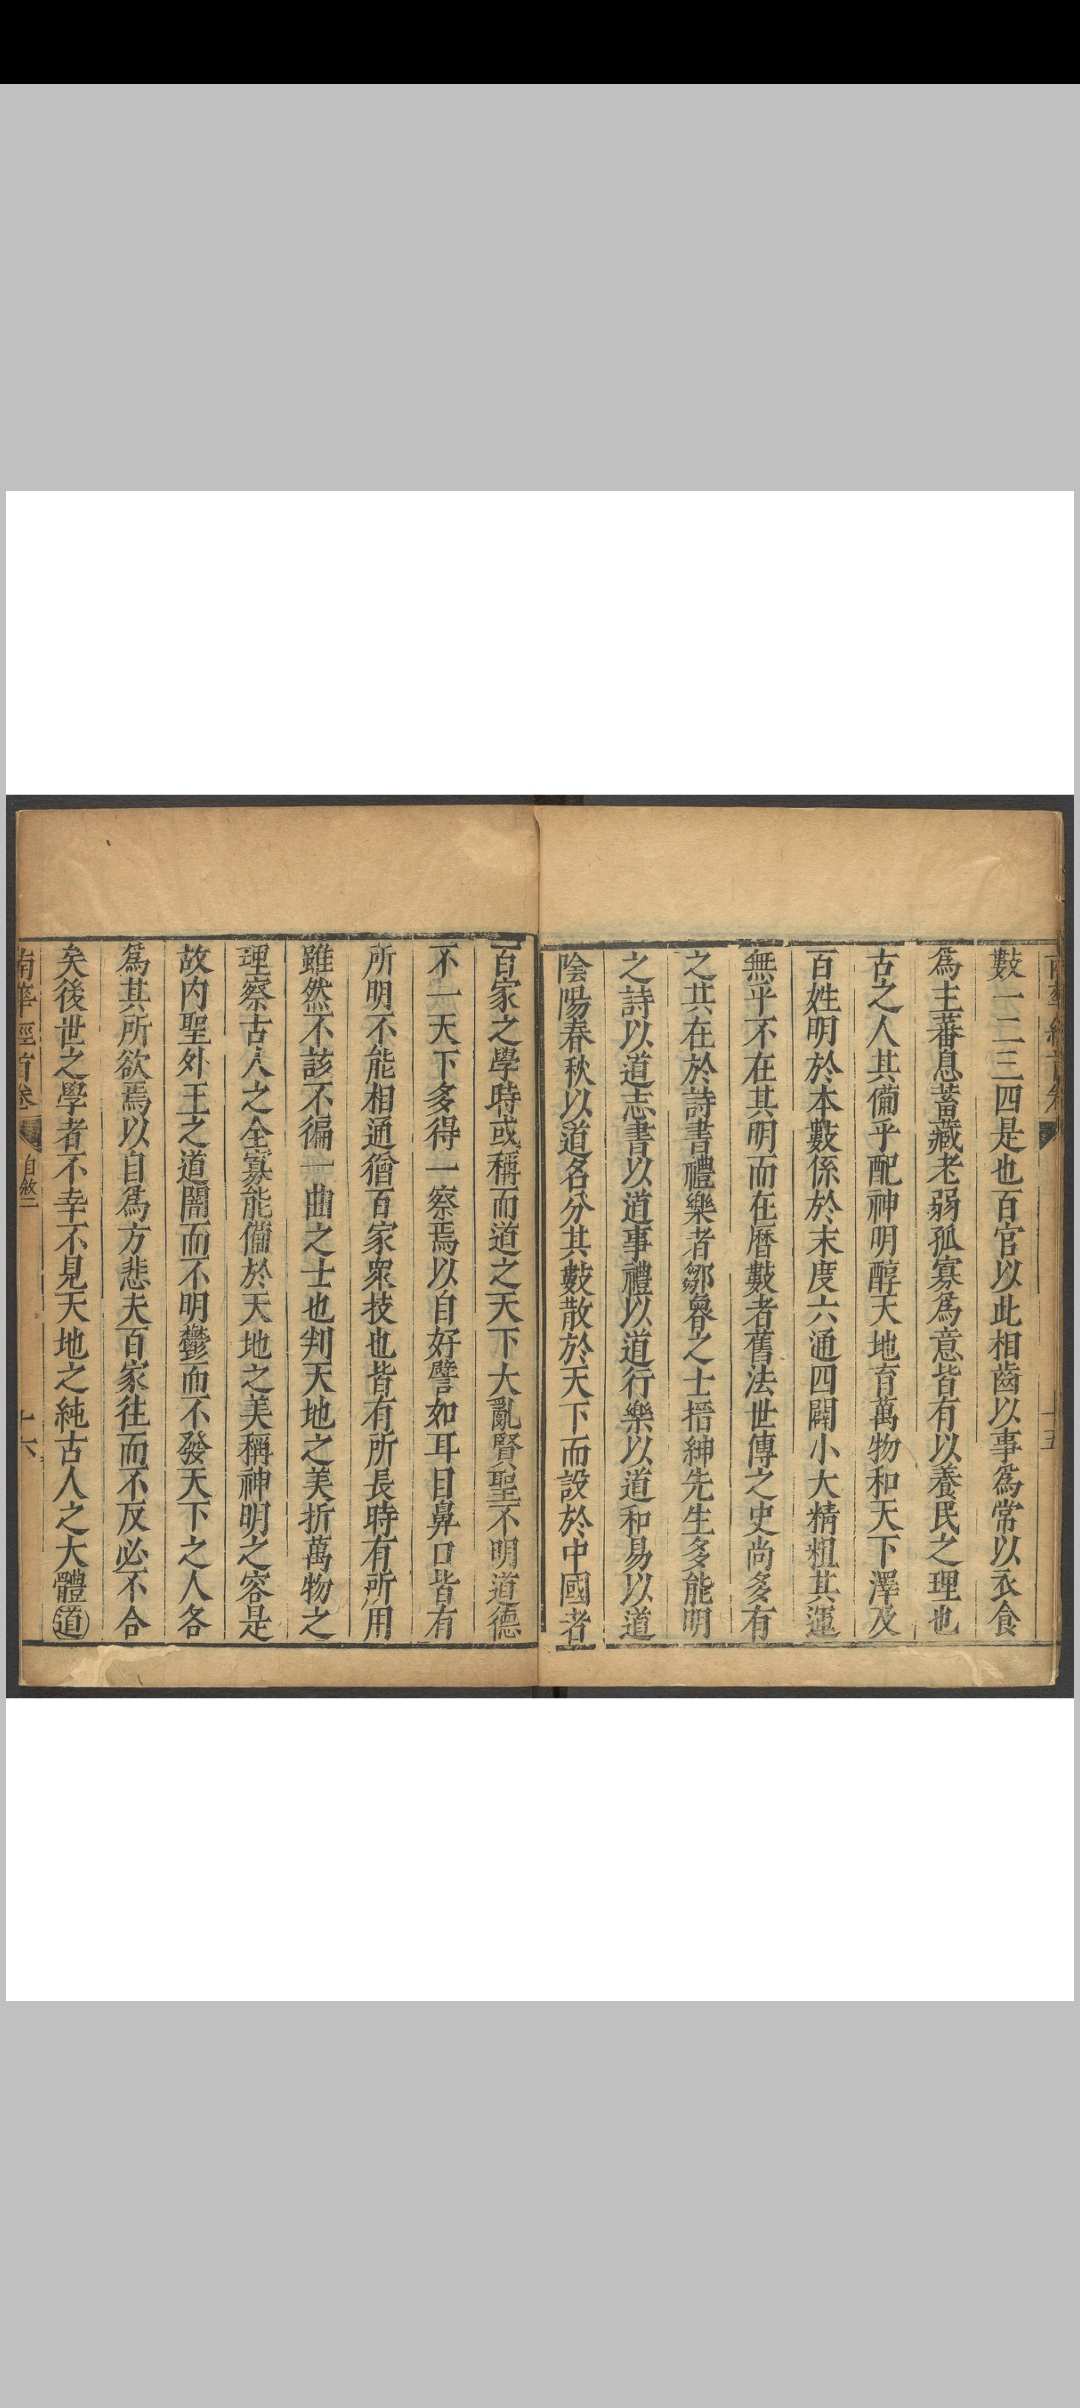 數一二三四是也百官以此相齒以事爲常以衣食
爲主蕃息蓄藏老弱孤寡爲意皆有以養民之理也
古之人其備乎配神明醇天地育萬物和天下澤及
百姓明於本數係於末度六通四闢小大精粗其運
無乎不在其明而在曆數者舊法世傳之史尚多有
之其在於詩書禮樂者鄒魯之士搢紳先生多能明
之詩以道志書以道事禮以道行樂以道和易以道
陰陽春秋以道名分其數散於天下而設於中國者
百家之學時或稱而道之天下大亂賢聖不明道德
不一天下多得一察焉以自好譬如耳目鼻口皆有
所明不能相通猶百家衆技也皆有所長時有所用
雖然不該不徧一曲之士也判天地之美折萬物之
理察古人之全寡能備於天地之美稱神明之容是
故内聖外王之道闇而不明鬱而不發天下之人各
爲其所欲焉以自爲方悲夫百家往而不反必不合
矣後世之學者不幸不見天地之純古人之大體道
南華經首卷 十六